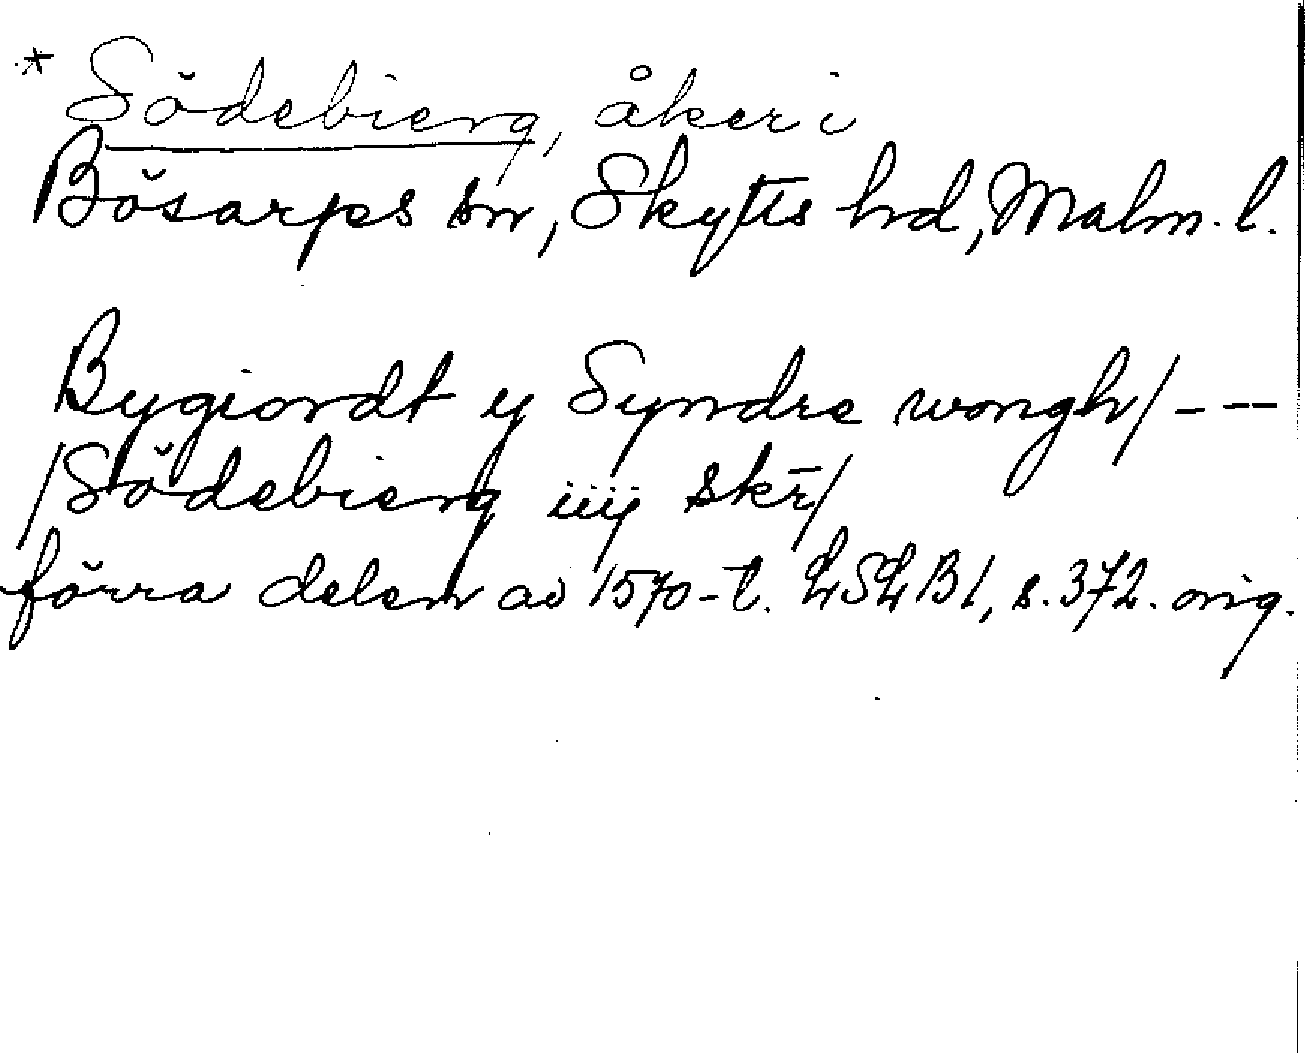 * Södebierg, åker i
Bösarps sn, Skytts hd, Malm. l.
Bygiordt y Syndre wongh/ - - -
/Södebierg iiij skr̄/
förra delen av 1570-t. LSLB1, s. 372. orig.